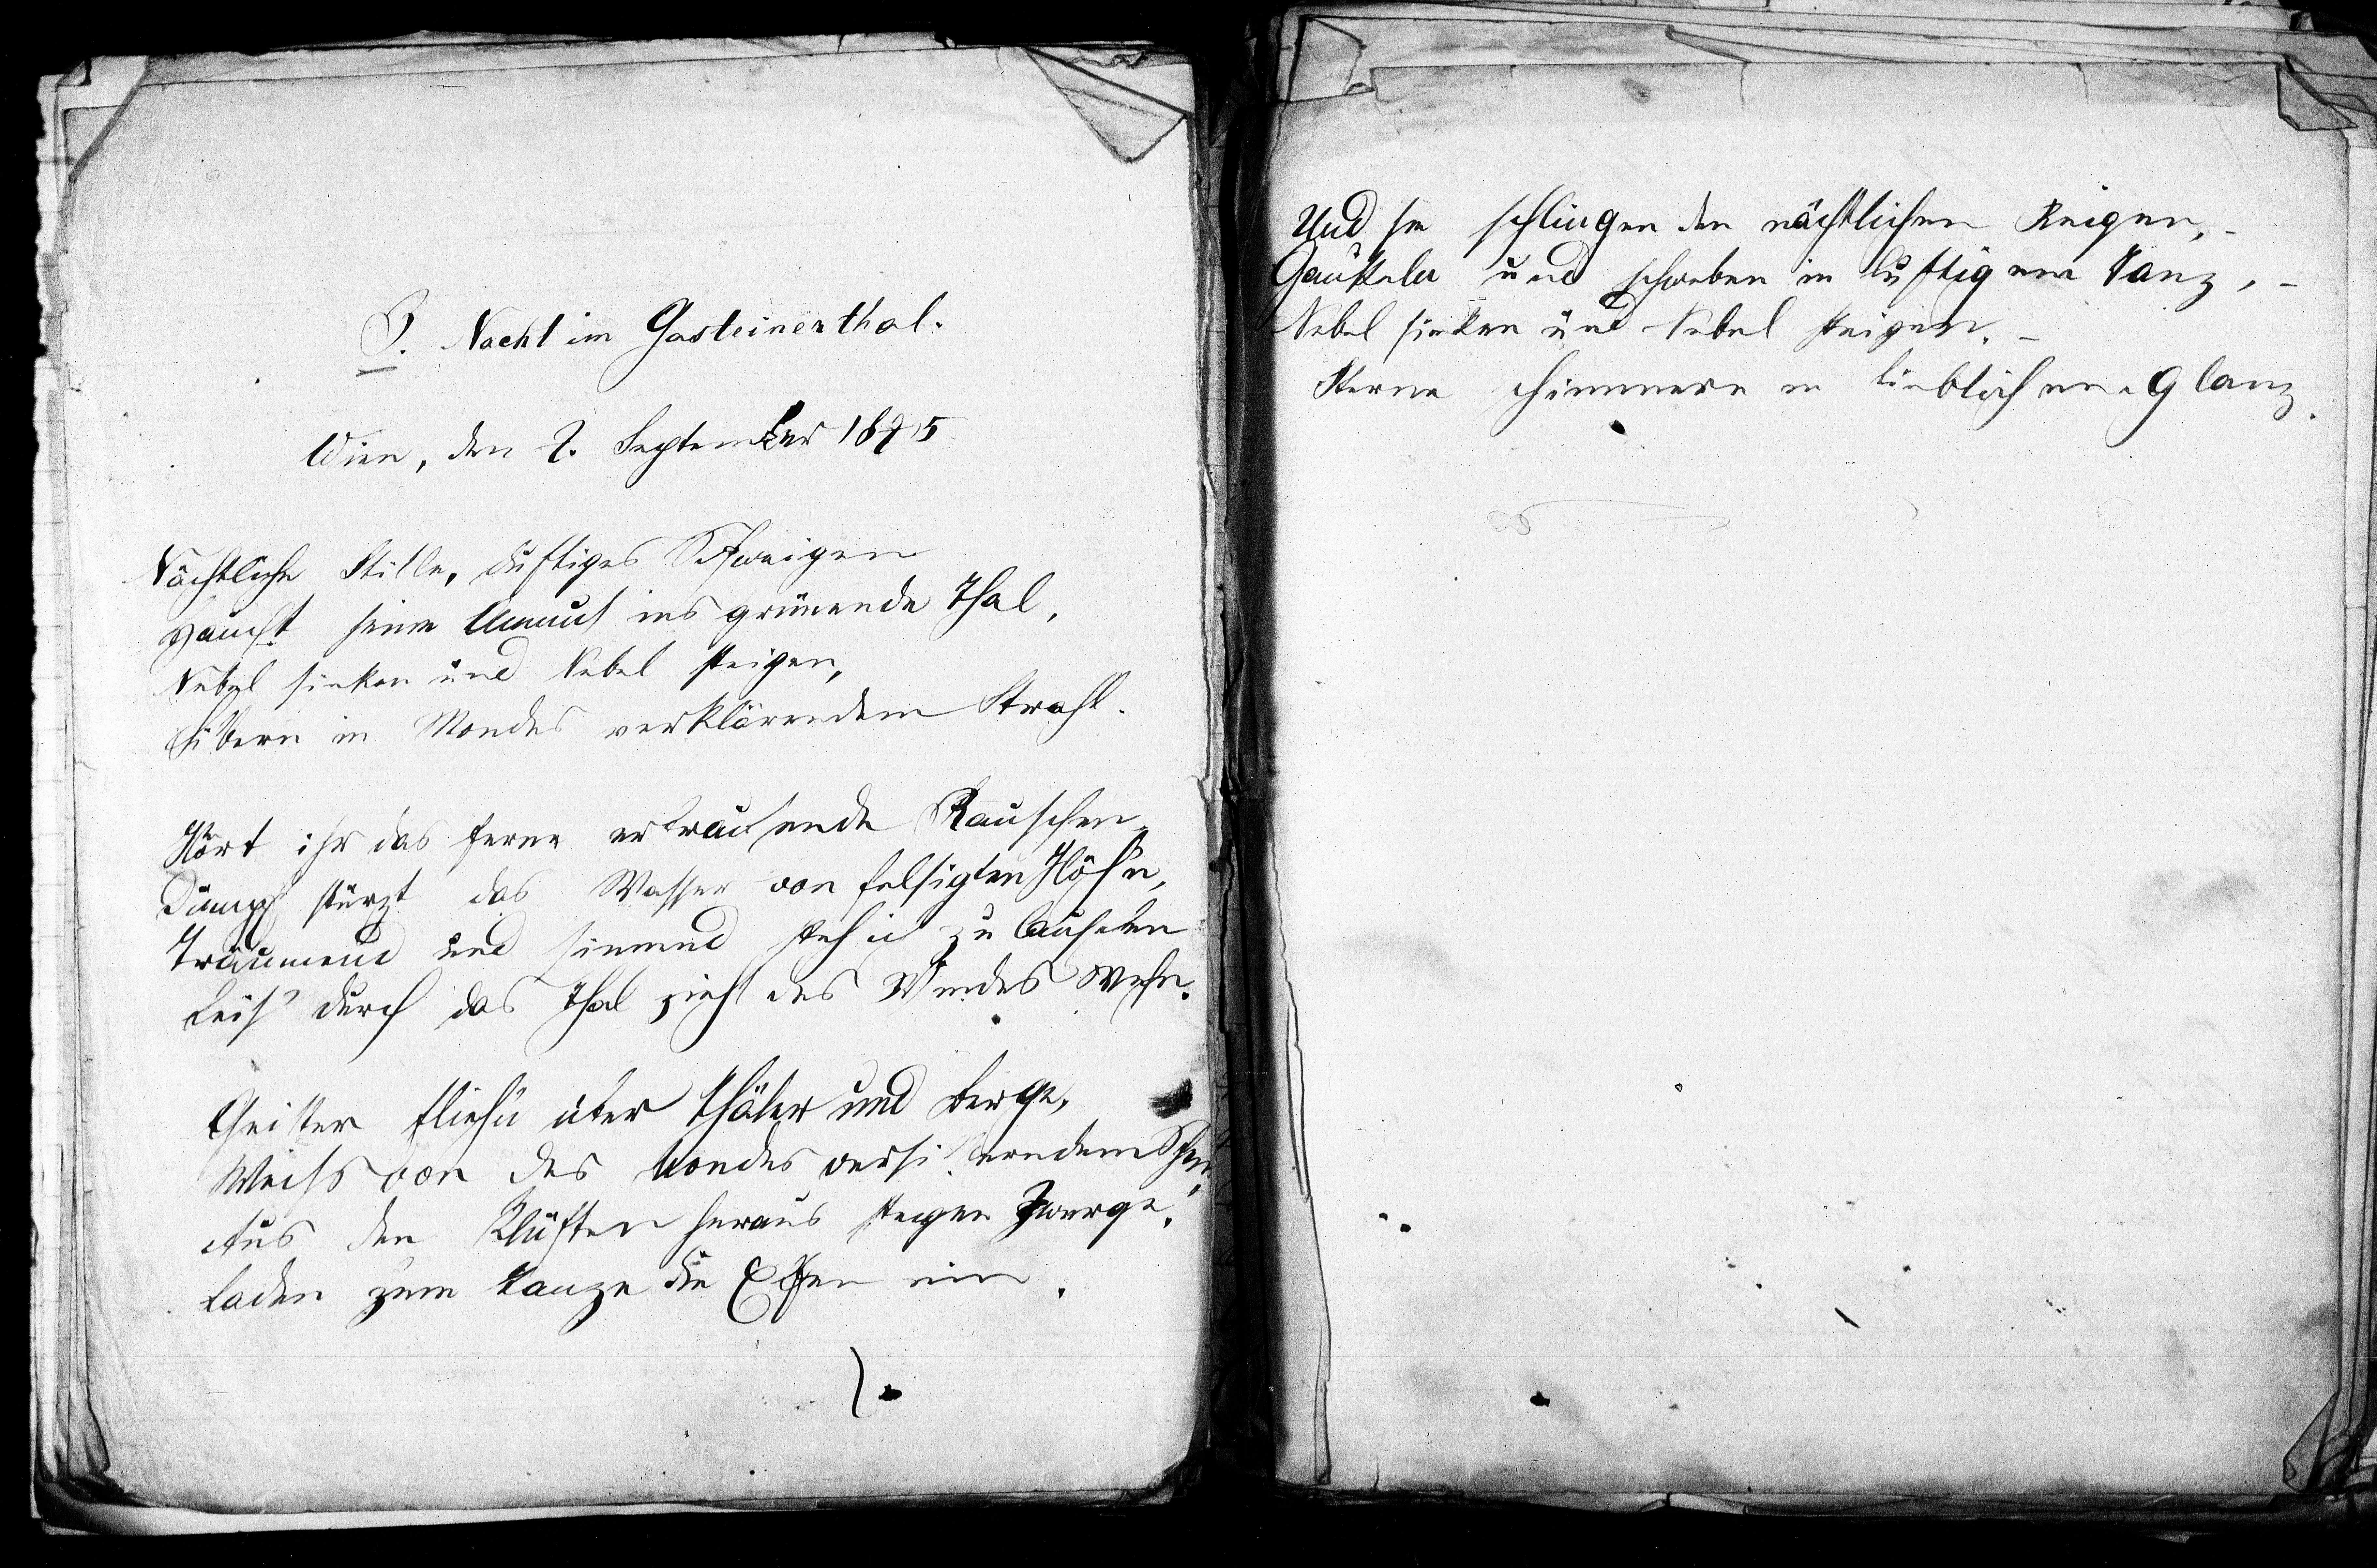 Nacht im Gasteinerthal.
Wien, den 2. September 1875
Nächtliche Stille, duftiges Schweigen
Haucht seine Anmut ins grünende Thal,
Nebel sinken und Nebel steigen,
Silbern in Mondes verklärendem Strahl.
Hört ihr das ferne erbrausende Rauschen
Dumpf stürzt das Wasser von felsigten Höh'n,
Träumend und sinnend steh ich zu lauschen
Leis' durch das Thal zieht des Windes Wehn.
Geister flieh'n über Thäler und Berge,
Weiss von des Mondes versilberndem Schein,
Aus den Klüften heraus steigen Zwerge,
Laden zum Tanze die Elfen ein.
Und sie schlingen den nächtlichen Reigen, -
Gaukeln und schweben in luftigem Tanz, -
Nebel sinken und Nebel steigen. -
Sterne schimmern in lieblichem Glanz.